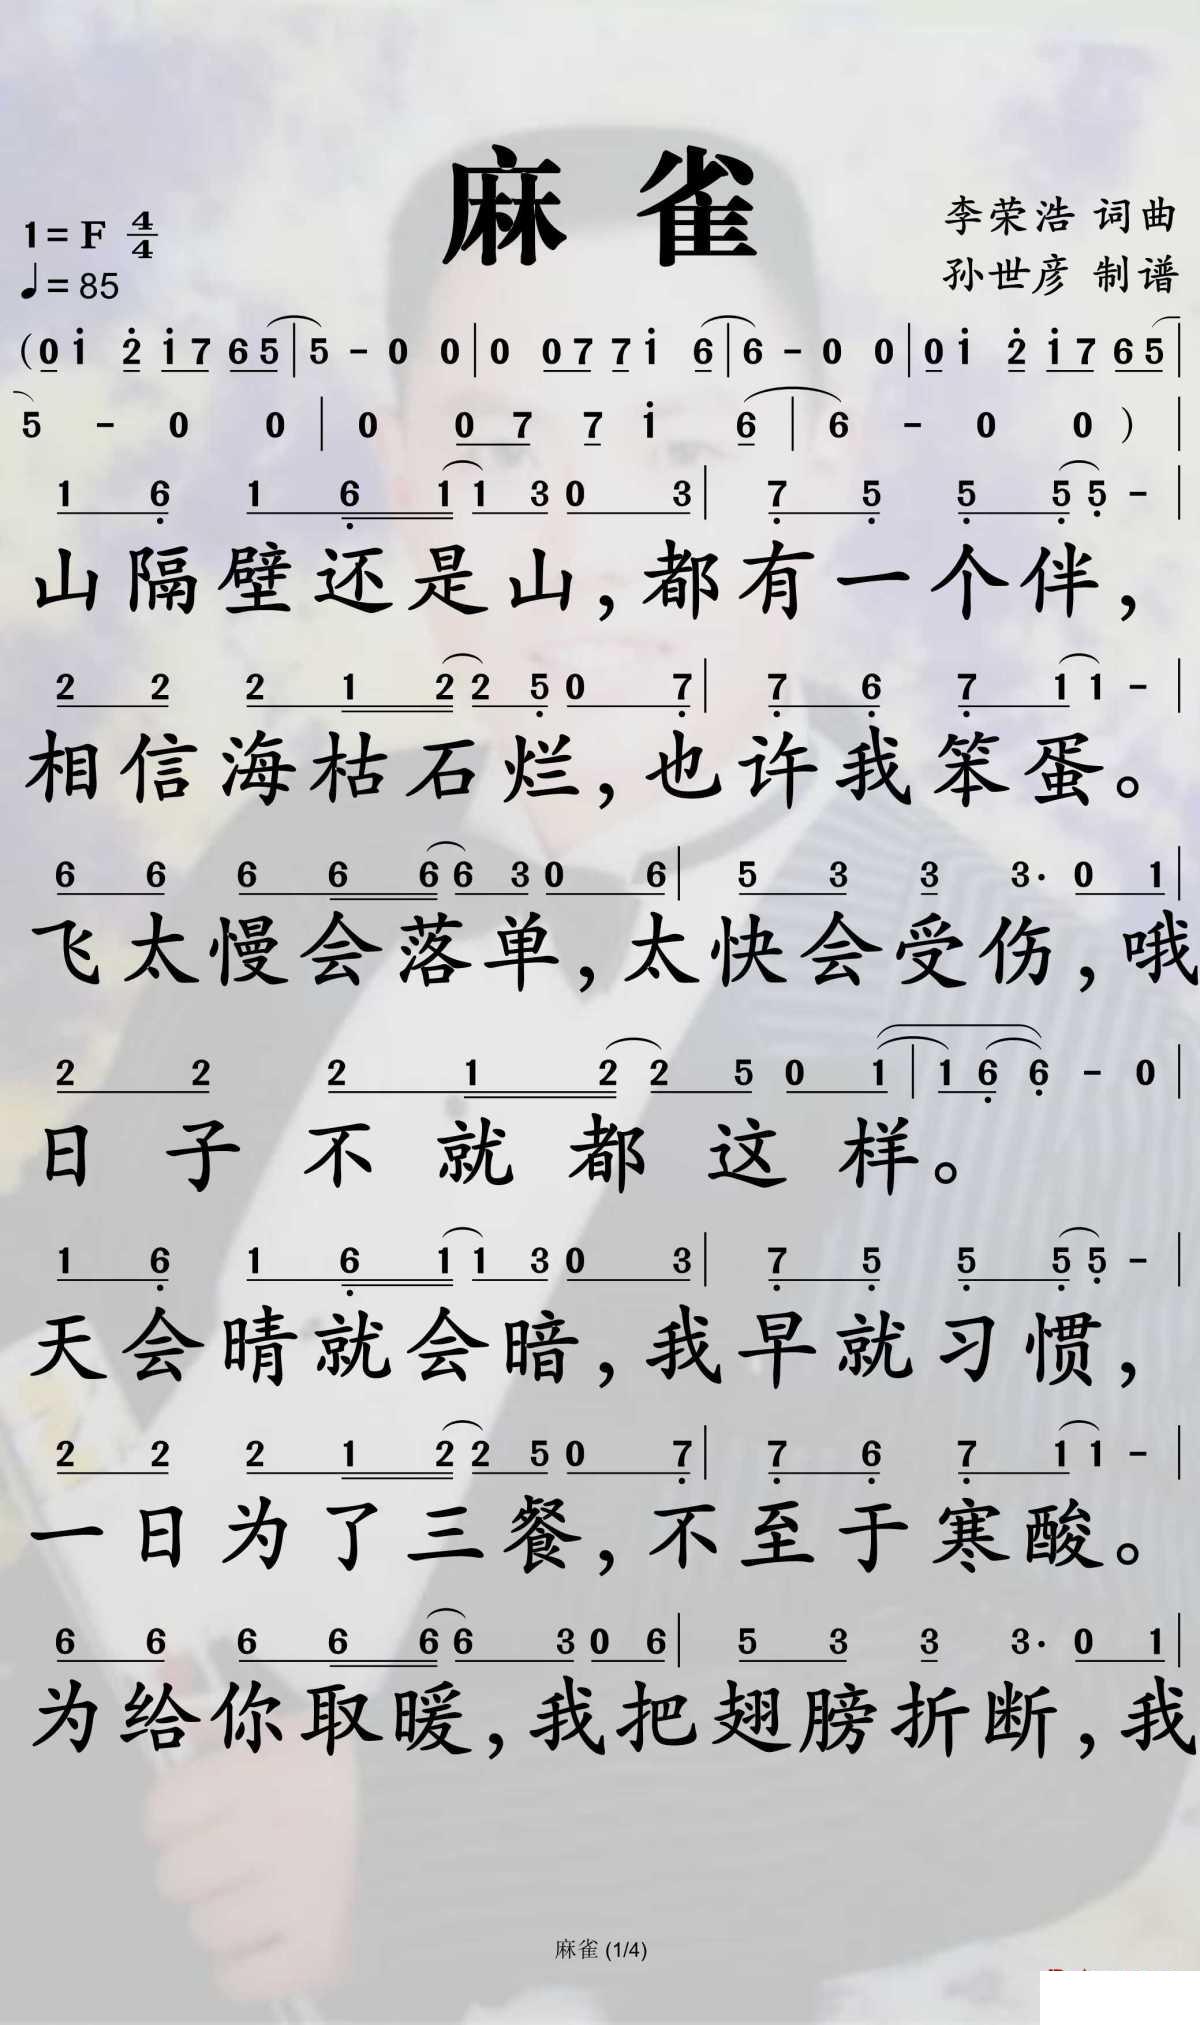 麻雀
1=F 4/4
♩=85
李荣浩 词曲
孙世彦 制谱
(0 i 2̇ i 7 6 5 | 5 - 0 0 | 0 0 7 7 i 6 | 6 - 0 0 | 0 i 2̇ i 7 6 5 |
5 - 0 0 | 0 0 7 7 i 6 | 6 - 0 0 ) |
1 6̣ 1 6̣ 1 1 3 0 3 | 7̣ 5̣ 5̣ 5̣ 5̣ - |
山隔壁还是山,都有一个伴,
2 2 2 1 2 2 5̣ 0 7̣ | 7̣ 6̣ 7̣ 1 1 - |
相信海枯石烂,也许我笨蛋。
6 6 6 6 6 6 3 0 6 | 5 3 3 3· 0 1 |
飞太慢会落单,太快会受伤,哦
2 2 2 1 2 2 5 0 1 | 1 6̣ 6̣ - 0 |
日子不就都这样。
1 6̣ 1 6̣ 1 1 3 0 3 | 7̣ 5̣ 5̣ 5̣ 5̣ - |
天会晴就会暗,我早就习惯,
2 2 2 1 2 2 5 0 7̣ | 7̣ 6̣ 7̣ 1 1 - |
一日为了三餐,不至于寒酸。
6 6 6 6 6 6 3 0 6 | 5 3 3 3· 0 1 |
为给你取暖,我把翅膀折断,我
麻雀 (1/4)